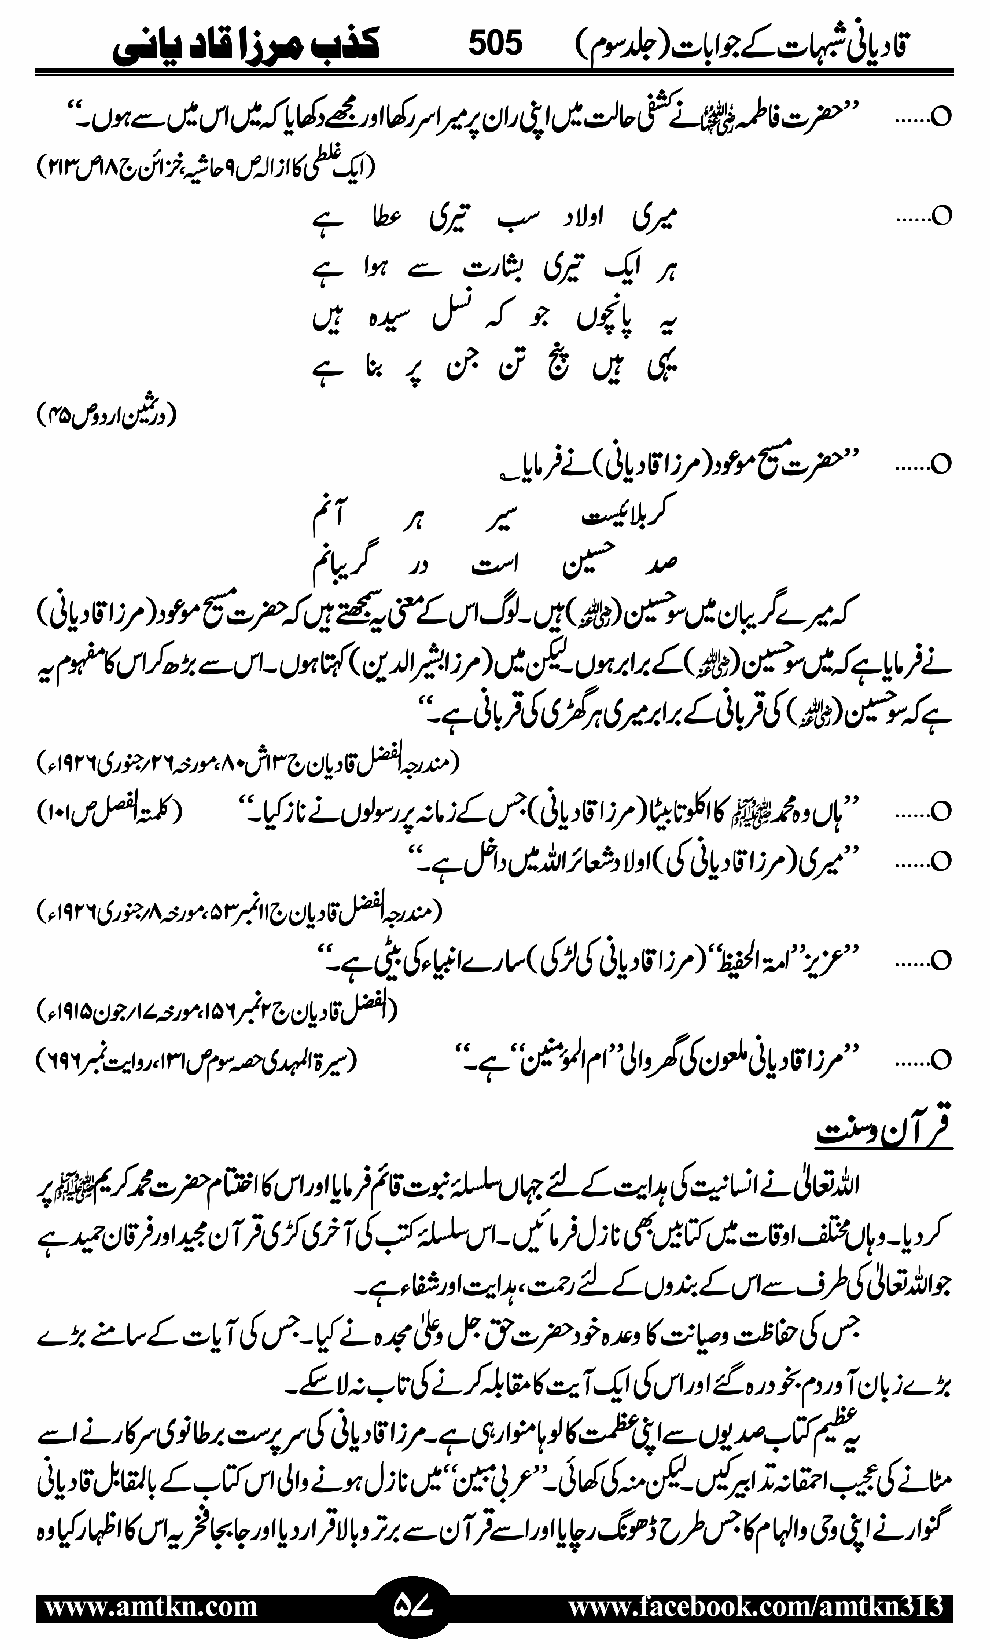 قادیانی شبہات کے جوابات (جلد سوم) 505 کذب مرزا قادیانی
○...... ’’حضرت فاطمہؓ نے کشفی حالت میں اپنی ران پر میرا سر رکھا اور مجھے دکھایا کہ میں اس میں سے ہوں۔‘‘
(ایک غلطی کا ازالہ ص۹ حاشیہ، خزائن ج۱۸ ص۲۱۳)
○...... میری اولاد سب تیری عطا ہے
ہر ایک تیری بشارت سے ہوا ہے
یہ پانچوں جو کہ نسل سیدہ ہیں
یہی ہیں پنج تن جن پر بنا ہے
(درثمین اردو ص۴۵)
○...... ’’حضرت مسیح موعود (مرزا قادیانی) نے فرمایا ؎
کربلائیست سیر ہر آنم
صد حسین است در گریبانم
کہ میرے گریبان میں سو حسین (رضی اللہ عنہ) ہیں۔ لوگ اس کے معنی یہ سمجھتے ہیں کہ حضرت مسیح موعود (مرزا قادیانی)
نے فرمایا ہے کہ میں سو حسین (رضی اللہ عنہ) کے برابر ہوں۔ لیکن میں (مرزا بشیر الدین) کہتا ہوں۔ اس سے بڑھ کر اس کا مفہوم یہ
ہے کہ سو حسین (رضی اللہ عنہ) کی قربانی کے برابر میری ہر گھڑی کی قربانی ہے۔‘‘
(مندرجہ الفضل قادیان ج۱۳ ش۸۰، مورخہ ۲۶؍جنوری ۱۹۲۶ء)
○...... ’’ہاں وہ محمد ﷺ کا اکلوتا بیٹا (مرزا قادیانی) جس کے زمانہ پر رسولوں نے ناز کیا۔‘‘ (کلمۃ الفصل ص۱۰۱)
○...... ’’میری (مرزا قادیانی کی) اولاد شعائر اللہ میں داخل ہے۔‘‘
(مندرجہ الفضل قادیان ج۱۱ نمبر۵۳، مورخہ ۸؍جنوری ۱۹۲۶ء)
○...... ’’عزیز ’’امۃ الحفیظ‘‘ (مرزا قادیانی کی لڑکی) سارے انبیاء کی بیٹی ہے۔‘‘
(الفضل قادیان ج۲ نمبر۱۵۶، مورخہ ۱۷؍جون ۱۹۱۵ء)
○...... ’’مرزا قادیانی ملعون کی گھر والی ’’ام المؤمنین‘‘ ہے۔‘‘ (سیرۃ المہدی حصہ سوم ص۱۳۱، روایت نمبر۶۹۶)
قرآن وسنت
اللہ تعالیٰ نے انسانیت کی ہدایت کے لئے جہاں سلسلۂ نبوت قائم فرمایا اور اس کا اختتام حضرت محمد کریم ﷺ پر
کردیا۔ وہاں مختلف اوقات میں کتابیں بھی نازل فرمائیں۔ اس سلسلۂ کتب کی آخری کڑی قرآن مجید اور فرقان حمید ہے
جو اللہ تعالیٰ کی طرف سے اس کے بندوں کے لئے رحمت، ہدایت اور شفاء ہے۔
جس کی حفاظت وصیانت کا وعدہ خود حضرت حق جل وعلیٰ مجدہ نے کیا۔ جس کی آیات کے سامنے بڑے
بڑے زبان آور دم بخود رہ گئے اور اس کی ایک آیت کا مقابلہ کرنے کی تاب نہ لا سکے۔
یہ عظیم کتاب صدیوں سے اپنی عظمت کا لوہا منوا رہی ہے۔ مرزا قادیانی کی سرپرست برطانوی سرکار نے اسے
مٹانے کی عجیب احمقانہ تدابیر کیں۔ لیکن منہ کی کھائی۔ ’’عربی مبین‘‘ میں نازل ہونے والی اس کتاب کے بالمقابل قادیانی
گنوار نے اپنی وحی والہام کا جس طرح ڈھونگ رچایا اور اسے قرآن سے برتر وبالا قرار دیا اور جابجا فخریہ اس کا اظہار کیا وہ
www.amtkn.com ۵۷ www.facebook.com/amtkn313